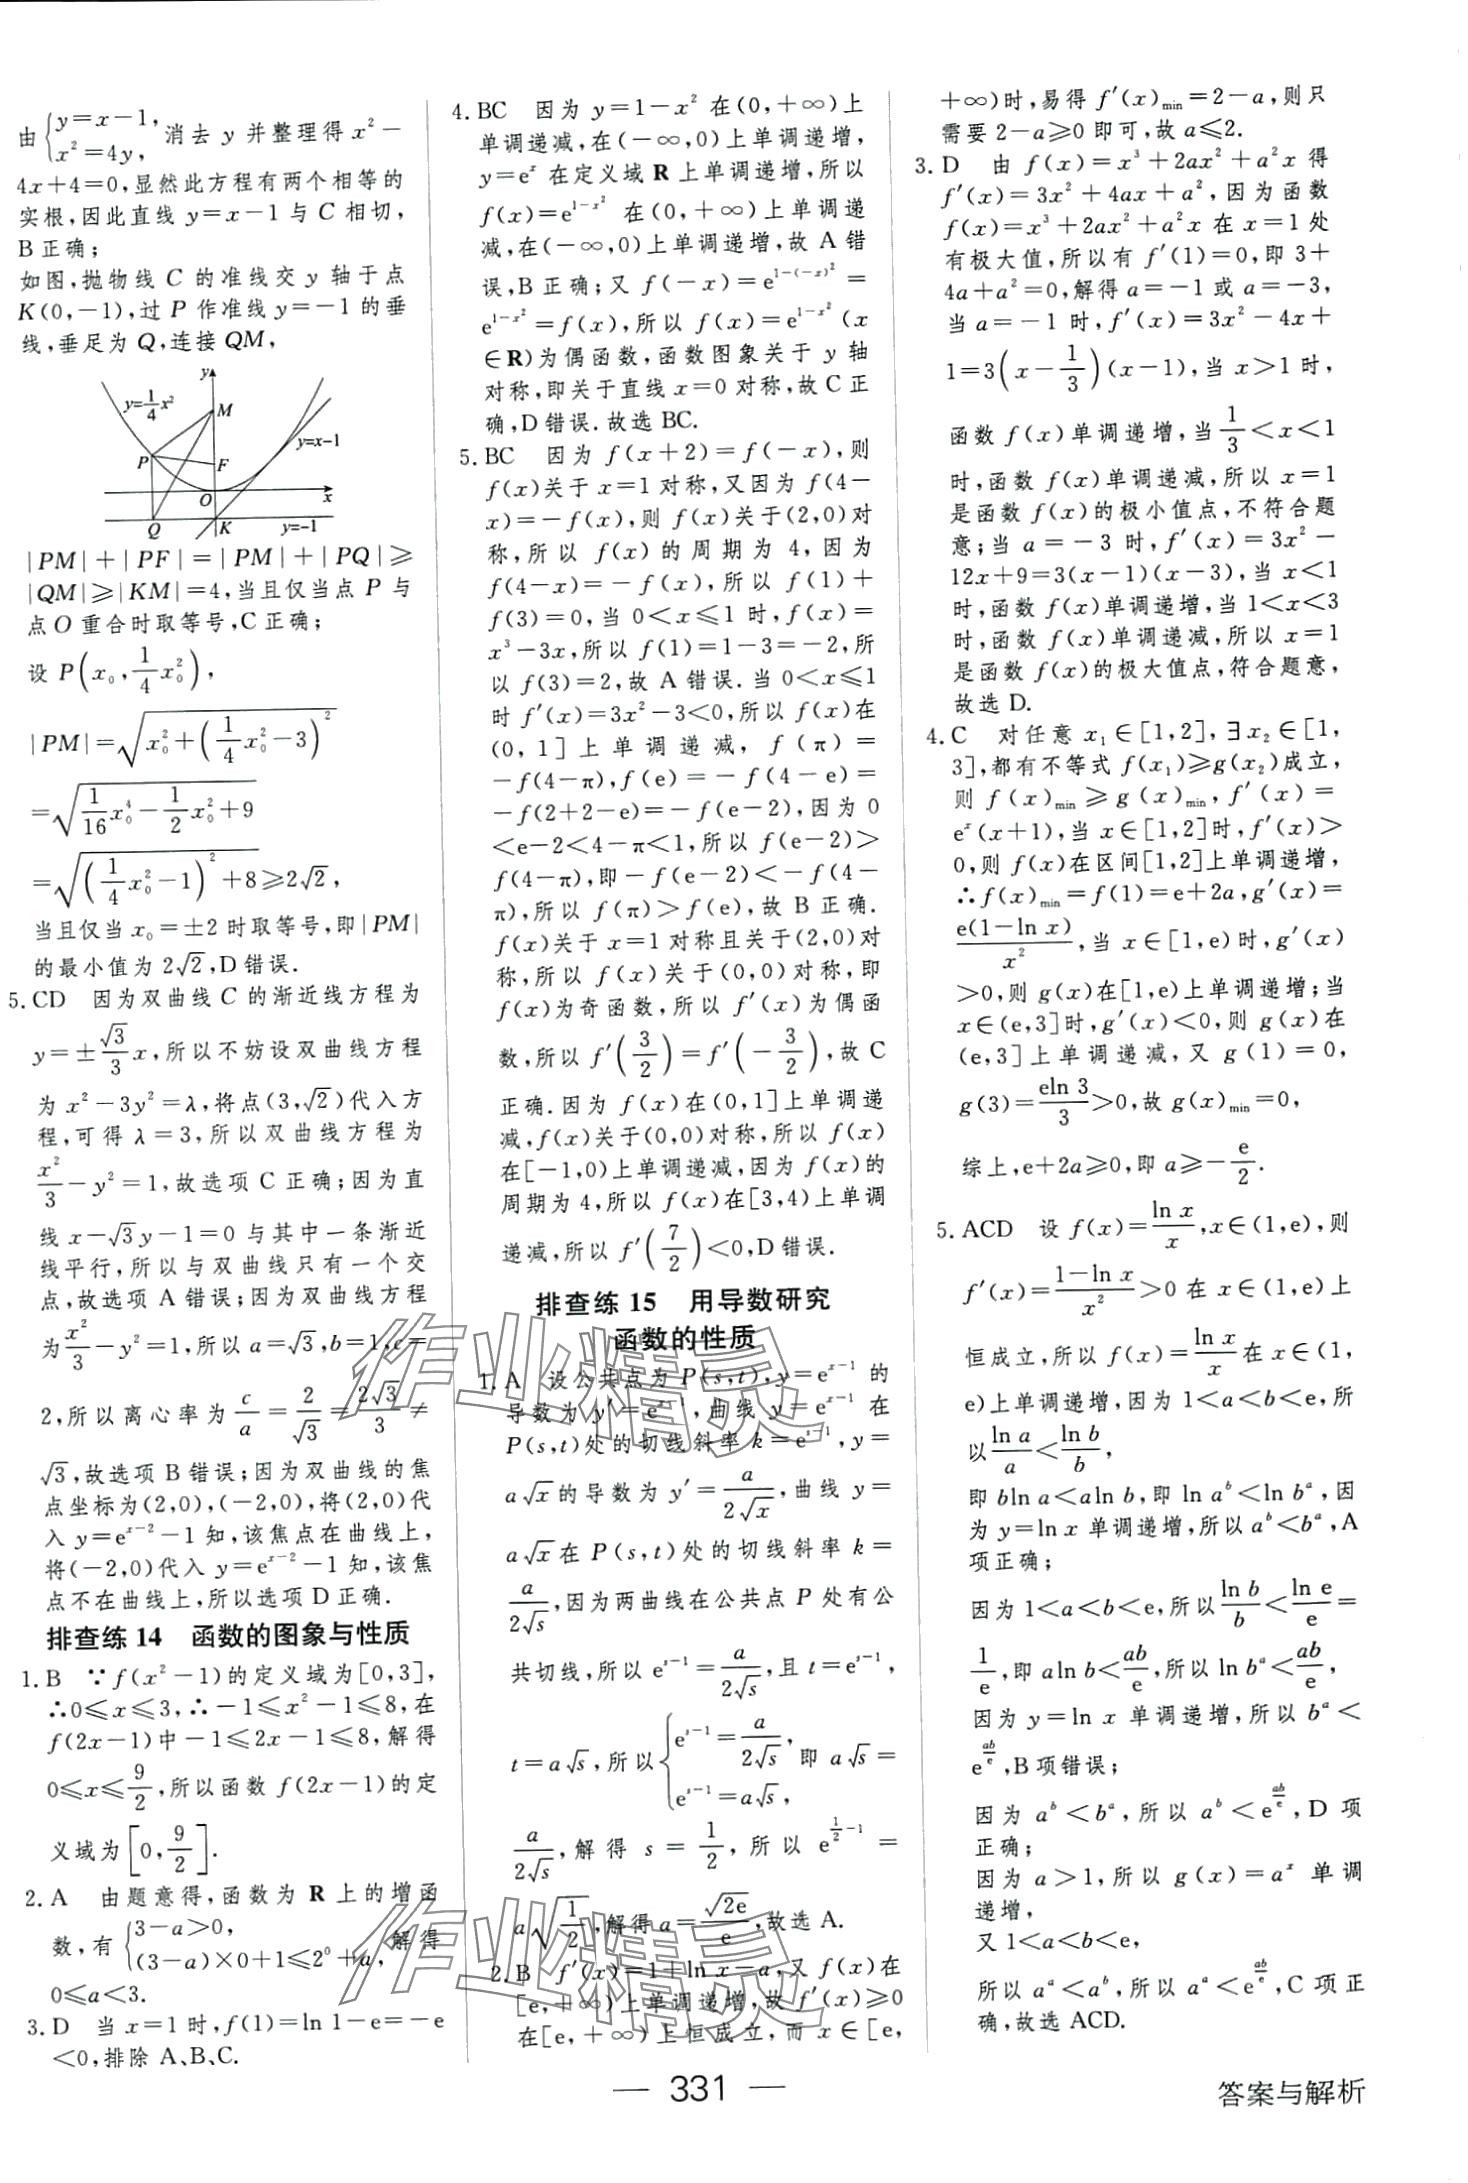 由{y=x-1, x²=4y, 消去 y 并整理得 x²-
4x+4=0,显然此方程有两个相等的
实根,因此直线 y=x-1 与 C 相切,
B 正确;
如图,抛物线 C 的准线交 y 轴于点
K(0,-1),过 P 作准线 y=-1 的垂
线,垂足为 Q,连接 QM,
y
y=1/4 x²
M
y=x-1
P
F
O
x
Q
K
y=-1
|PM|+|PF|=|PM|+|PQ|≥
|QM|≥|KM|=4,当且仅当点 P 与
点 O 重合时取等号,C 正确;
设 P(x₀, 1/4 x₀²),
|PM|=√(x₀²+(1/4 x₀²-3)²)
=√(1/16 x₀⁴-1/2 x₀²+9)
=√((1/4 x₀²-1)²+8)≥2√2,
当且仅当 x₀=±2 时取等号,即|PM|
的最小值为 2√2,D 错误.
5.CD 因为双曲线 C 的渐近线方程为
y=±√3/3 x,所以不妨设双曲线方程
为 x²-3y²=λ,将点(3,√2)代入方
程,可得 λ=3,所以双曲线方程为
x²/3-y²=1,故选项 C 正确;因为直
线 x-√3y-1=0 与其中一条渐近
线平行,所以与双曲线只有一个交
点,故选项 A 错误;因为双曲线方程
为 x²/3-y²=1,所以 a=√3,b=1,c=
2,所以离心率为 c/a=2/√3=2√3/3≠
√3,故选项 B 错误;因为双曲线的焦
点坐标为(2,0),(-2,0),将(2,0)代
入 y=e^(x-2)-1 知,该焦点在曲线上,
将(-2,0)代入 y=e^(x-2)-1 知,该焦
点不在曲线上,所以选项 D 正确.
排查练 14 函数的图象与性质
1.B ∵f(x²-1)的定义域为[0,3],
∴0≤x≤3,∴-1≤x²-1≤8,在
f(2x-1)中-1≤2x-1≤8,解得
0≤x≤9/2,所以函数 f(2x-1)的定
义域为[0,9/2].
2.A 由题意得,函数为 R 上的增函
数,有{3-a>0, (3-a)×0+1≤2⁰+a, 解得
0≤a<3.
3.D 当 x=1 时,f(1)=ln 1-e=-e
<0,排除 A、B、C.
4.BC 因为 y=1-x² 在(0,+∞)上
单调递减,在(-∞,0)上单调递增,
y=eˣ 在定义域 R 上单调递增,所以
f(x)=e^(1-x²) 在(0,+∞)上单调递
减,在(-∞,0)上单调递增,故 A 错
误,B 正确;又 f(-x)=e^(1-(-x)²)=
e^(1-x²)=f(x),所以 f(x)=e^(1-x²)(x
∈R)为偶函数,函数图象关于 y 轴
对称,即关于直线 x=0 对称,故 C 正
确,D 错误.故选 BC.
5.BC 因为 f(x+2)=f(-x),则
f(x)关于 x=1 对称,又因为 f(4-
x)=-f(x),则 f(x)关于(2,0)对
称,所以 f(x)的周期为 4,因为
f(4-x)=-f(x),所以 f(1)+
f(3)=0,当 0<x≤1 时,f(x)=
x³-3x,所以 f(1)=1-3=-2,所
以 f(3)=2,故 A 错误.当 0<x≤1
时 f′(x)=3x²-3<0,所以 f(x)在
(0,1]上单调递减,f(π)=
-f(4-π),f(e)=-f(4-e)=
-f(2+2-e)=-f(e-2),因为 0
<e-2<4-π<1,所以 f(e-2)>
f(4-π),即-f(e-2)<-f(4-
π),所以 f(π)>f(e),故 B 正确.
f(x)关于 x=1 对称且关于(2,0)对
称,所以 f(x)关于(0,0)对称,即
f(x)为奇函数,所以 f′(x)为偶函
数,所以 f′(3/2)=f′(-3/2),故 C
正确.因为 f(x)在(0,1]上单调递
减,f(x)关于(0,0)对称,所以 f(x)
在[-1,0)上单调递减,因为 f(x)的
周期为 4,所以 f(x)在[3,4)上单调
递减,所以 f′(7/2)<0,D 错误.
排查练 15 用导数研究
函数的性质
1.A 设公共点为 P(s,t),y=e^(x-1) 的
导数为 y′=e^(x-1),曲线 y=e^(x-1) 在
P(s,t)处的切线斜率 k=e^(s-1),y=
a√x 的导数为 y′=a/(2√x),曲线 y=
a√x 在 P(s,t)处的切线斜率 k=
a/(2√s),因为两曲线在公共点 P 处有公
共切线,所以 e^(s-1)=a/(2√s),且 t=e^(s-1),
t=a√s,所以{e^(s-1)=a/(2√s), e^(s-1)=a√s, 即 a√s=
a/(2√s),解得 s=1/2,所以 e^(1/2-1)=
a√(1/2),解得 a=√(2e)/e,故选 A.
2.B f′(x)=1+ln x-a,又 f(x)在
[e,+∞)上单调递增,故 f′(x)≥0
在[e,+∞)上恒成立,而 x∈[e,
+∞)时,易得 f′(x)min=2-a,则只
需要 2-a≥0 即可,故 a≤2.
3.D 由 f(x)=x³+2ax²+a²x 得
f′(x)=3x²+4ax+a²,因为函数
f(x)=x³+2ax²+a²x 在 x=1 处
有极大值,所以有 f′(1)=0,即 3+
4a+a²=0,解得 a=-1 或 a=-3,
当 a=-1 时,f′(x)=3x²-4x+
1=3(x-1/3)(x-1),当 x>1 时,
函数 f(x)单调递增,当 1/3<x<1
时,函数 f(x)单调递减,所以 x=1
是函数 f(x)的极小值点,不符合题
意;当 a=-3 时,f′(x)=3x²-
12x+9=3(x-1)(x-3),当 x<1
时,函数 f(x)单调递增,当 1<x<3
时,函数 f(x)单调递减,所以 x=1
是函数 f(x)的极大值点,符合题意,
故选 D.
4.C 对任意 x₁∈[1,2],∃x₂∈[1,
3],都有不等式 f(x₁)≥g(x₂)成立,
则 f(x)min≥g(x)min,f′(x)=
eˣ(x+1),当 x∈[1,2]时,f′(x)>
0,则 f(x)在区间[1,2]上单调递增,
∴f(x)min=f(1)=e+2a,g′(x)=
e(1-ln x)/x²,当 x∈[1,e)时,g′(x)
>0,则 g(x)在[1,e)上单调递增;当
x∈(e,3]时,g′(x)<0,则 g(x)在
(e,3]上单调递减,又 g(1)=0,
g(3)=eln 3/3>0,故 g(x)min=0,
综上,e+2a≥0,即 a≥-e/2.
5.ACD 设 f(x)=ln x/x,x∈(1,e),则
f′(x)=(1-ln x)/x²>0 在 x∈(1,e)上
恒成立,所以 f(x)=ln x/x 在 x∈(1,
e)上单调递增,因为 1<a<b<e,所
以 ln a/a<ln b/b,
即 bln a<aln b,即 ln aᵇ<ln bᵃ,因
为 y=ln x 单调递增,所以 aᵇ<bᵃ,A
项正确;
因为 1<a<b<e,所以 ln b/b<ln e/e=
1/e,即 aln b<ab/e,所以 ln bᵃ<ab/e,
因为 y=ln x 单调递增,所以 bᵃ<
e^(ab/e),B 项错误;
因为 aᵇ<bᵃ,所以 aᵇ<e^(ab/e),D 项
正确;
因为 a>1,所以 g(x)=aˣ 单调
递增,
又 1<a<b<e,
所以 aᵃ<aᵇ,所以 aᵃ<e^(ab/e),C 项正
确,故选 ACD.
— 331 —
答案与解析
作业精灵
作业精灵